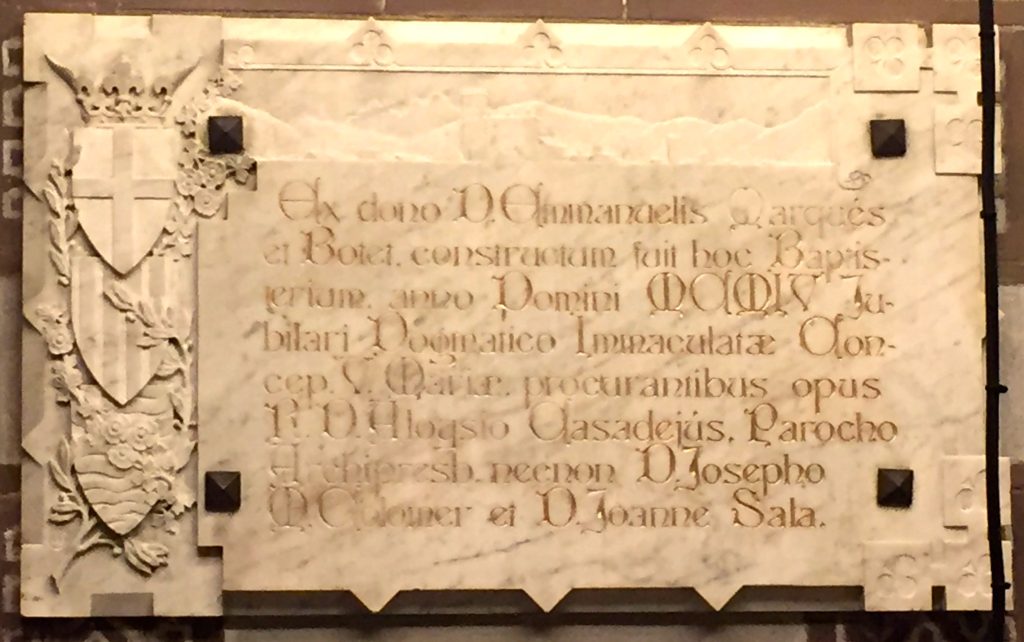 Ex dono D. Emmanuelis Marqués
et Botet. constructum fuit hoc Baptis-
terium. anno Domini MCMLV Ju-
bilari Dogmatico Immaculatæ Con-
cep. V. Mariæ. procurantibus opus
R. D. Aloysio Casadejús. Parocho
Archipresb. necnon D. Josepho
M. Colomer et D. Joanne Sala.